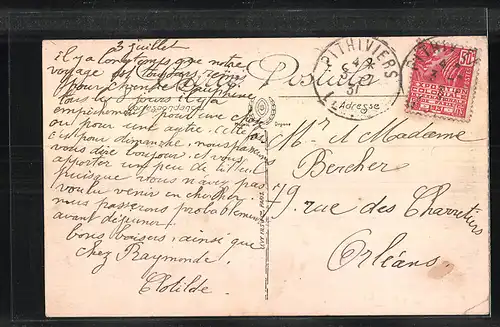 3 juillet
Il y a longtemps que notre
voyage est toujours remis
pour cause
tous les jours il y a
empêchement pour une chose
ou pour une autre. Cette fois
c'est pour dimanche, nous passerons
vous dire bonjour et vous
apporter un peu de tilleul
puisque vous n'avez pas
voulu venir en chercher
nous passerons probablement
avant déjeuner.
bons baisers, ainsi que
chez Raymonde.
Clotilde
Postale
Correspondance
Adresse
PITHIVIERS
31
PITHIVIERS
50c
EXPOSITION
COLONIALE
INTERNATIONALE
PARIS
M. et Madame
Bercher
79 rue des Charretiers
Orléans.